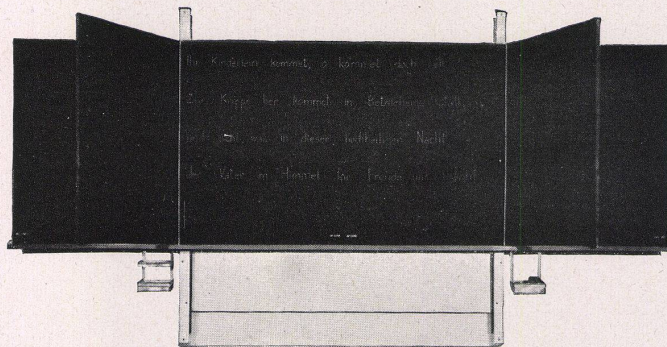 Ihr Kinderlein kommet, o kommet doch all
Zur Krippe her kommet in Bethlehems Stall,
und seht, was in dieser hochheiligen Nacht
der Vater im Himmel für Freude uns macht